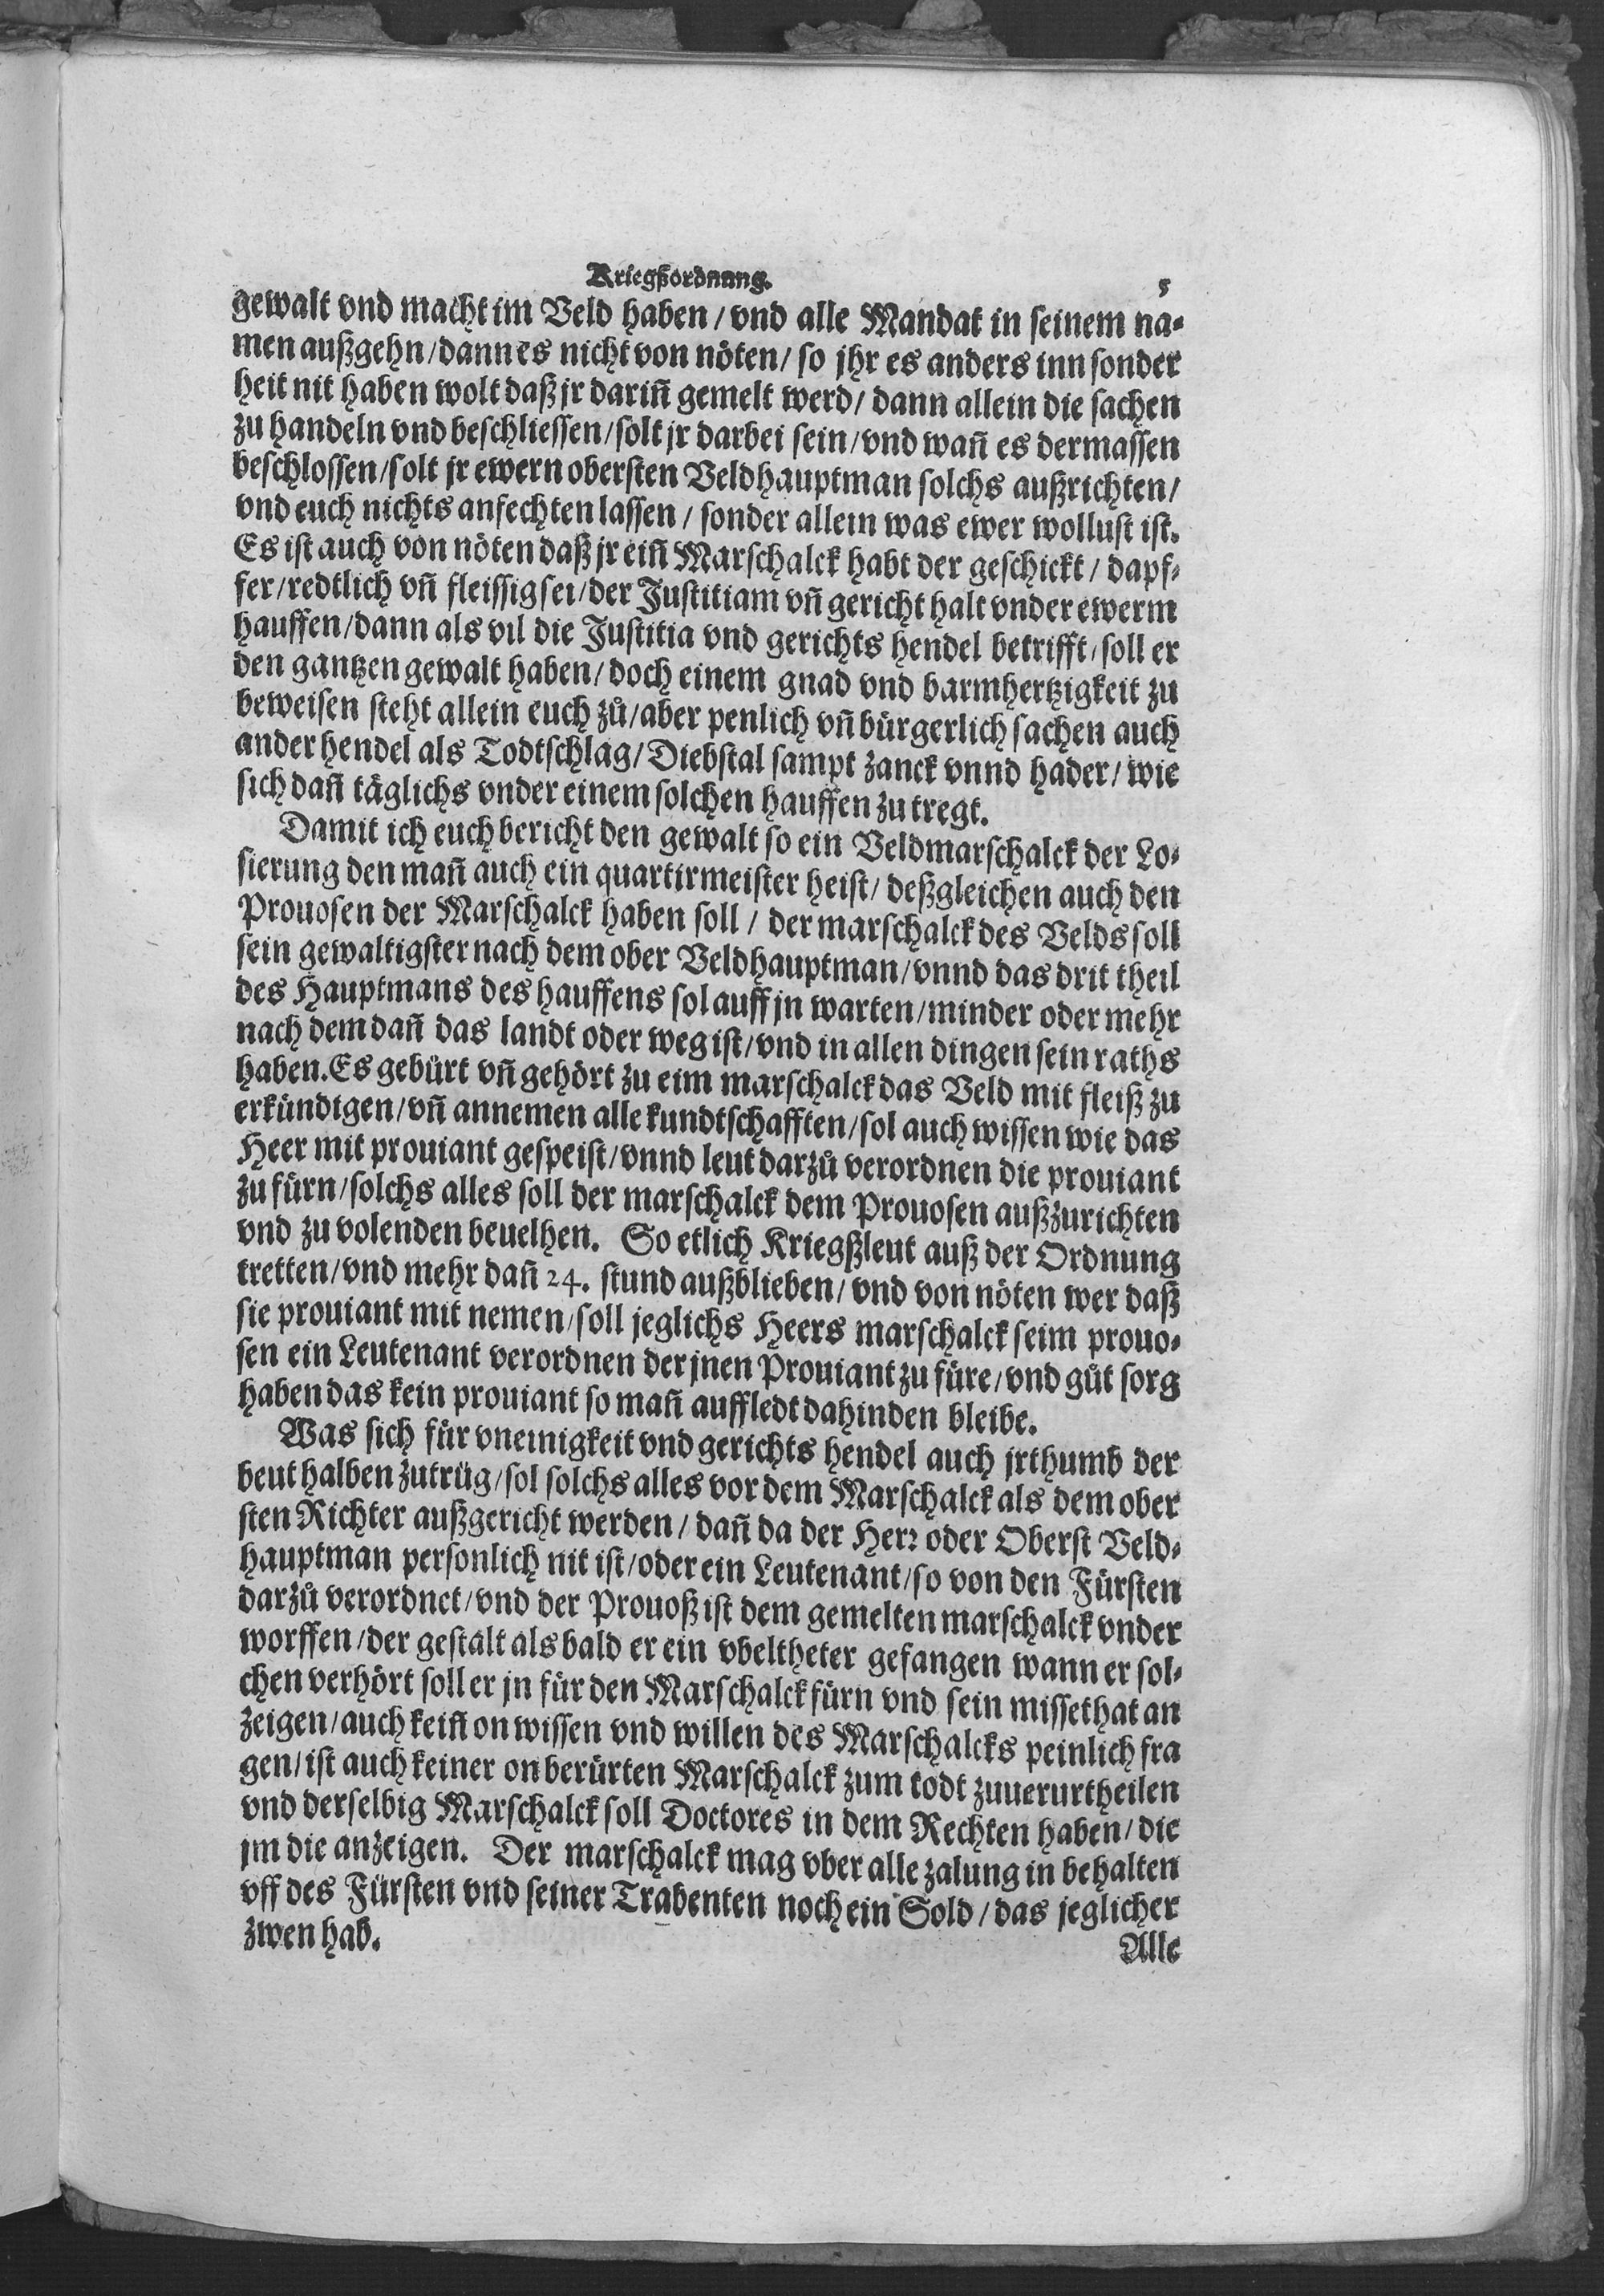 Kriegßordnung. 5
gewalt vnd macht im Veld haben / vnd alle Mandat in seinem na-
men außgehn / dann es nicht von nöten / so jhr es anders inn sonder
heit nit haben wolt daß jr dariñ gemelt werd / dann allein die sachen
zu handeln vnd beschliessen / solt jr darbei sein / vnd wañ es dermassen
beschlossen / solt jr ewern obersten Veldhauptman solchs außrichten /
vnd euch nichts anfechten lassen / sonder allein was ewer wollust ist.
Es ist auch von nöten daß jr eiñ Marschalck habt der geschickt / dapf-
fer / redtlich vñ fleissig sei / der Justitiam vñ gericht halt vnder ewerm
hauffen / dann als vil die Justitia vnd gerichts hendel betrifft / soll er
den gantzen gewalt haben / doch einem gnad vnd barmhertzigkeit zu
beweisen steht allein euch zů / aber penlich vñ bürgerlich sachen auch
ander hendel als Todtschlag / Diebstal sampt zanck vnnd hader / wie
sich dañ täglichs vnder einem solchen hauffen zu tregt.
Damit ich euch bericht den gewalt so ein Veldmarschalck der Lo-
sierung den mañ auch ein quartirmeister heist / deßgleichen auch den
Prouosen der Marschalck haben soll / der marschalck des Velds soll
sein gewaltigster nach dem ober Veldhauptman / vnnd das drit theil
des Hauptmans des hauffens sol auff jn warten / minder oder mehr
nach dem dañ das landt oder weg ist / vnd in allen dingen sein raths
haben. Es gebürt vñ gehört zu eim marschalck das Veld mit fleiß zu
erkündigen / vñ annemen alle kundtschafften / sol auch wissen wie das
Heer mit prouiant gespeist / vnnd leut darzů verordnen die prouiant
zu fürn / solchs alles soll der marschalck dem Prouosen außzurichten
vnd zu volenden beuelhen. So etlich Kriegßleut auß der Ordnung
tretten / vnd mehr dañ 24. stund außblieben / vnd von nöten wer daß
sie prouiant mit nemen / soll jeglichs Heers marschalck seim prouo-
sen ein Leutenant verordnen der jnen Prouiant zu füre / vnd gůt sorg
haben das kein prouiant so mañ auffledt dahinden bleibe.
Was sich für vneinigkeit vnd gerichts hendel auch jrthumb der
beut halben zutrüg / sol solchs alles vor dem Marschalck als dem ober
sten Richter außgericht werden / dañ da der Herr oder Oberst Veld-
hauptman personlich nit ist / oder ein Leutenant / so von den Fürsten
darzů verordnet / vnd der Prouoß ist dem gemelten marschalck vnder
worffen / der gestalt als bald er ein vbeltheter gefangen wann er sol-
chen verhört soll er jn für den Marschalck fürn vnd sein missethat an
zeigen / auch keiñ on wissen vnd willen des Marschalcks peinlich fra
gen / ist auch keiner on berürten Marschalck zum todt zuuerurtheilen
vnd derselbig Marschalck soll Doctores in dem Rechten haben / die
jm die anzeigen. Der marschalck mag vber alle zalung in behalten
vff des Fürsten vnd seiner Trabenten noch ein Sold / das jeglicher
zwen hab. Alle